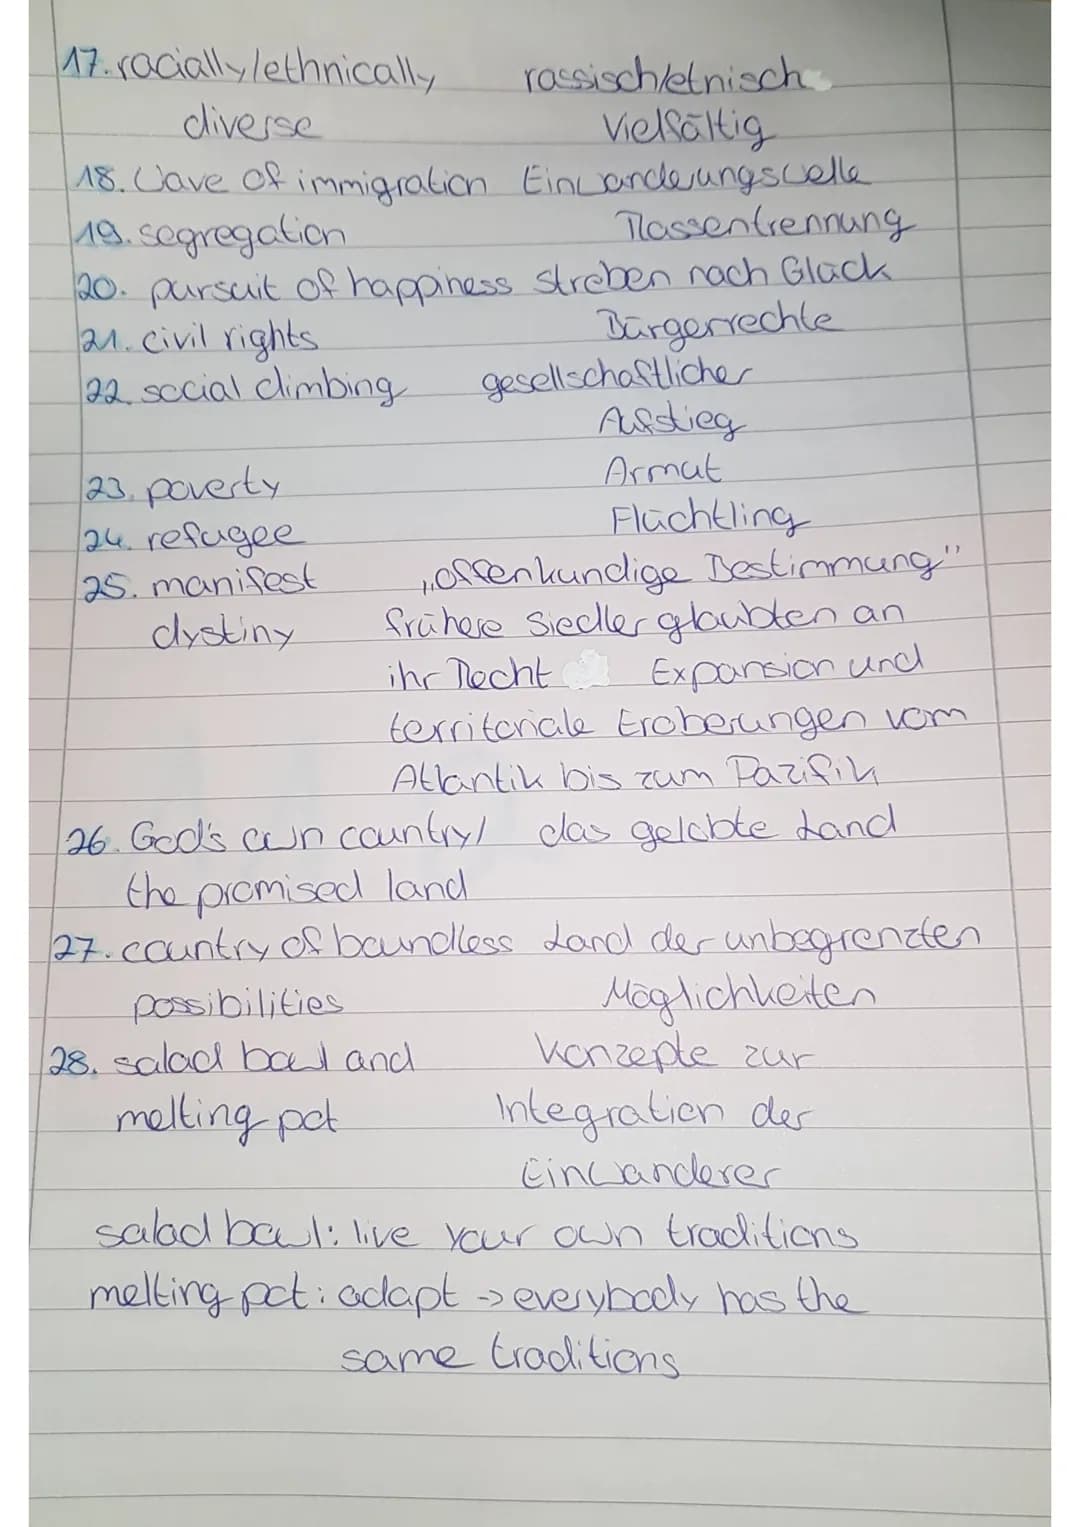 17. racially/ethnically rassisch/etnisch
diverse vielfältig
18. Wave of immigration Einwanderungswelle
19. segregation Rassentrennung
20. pursuit of happiness Streben nach Glück
21. civil rights Bürgerrechte
22. social climbing gesellschaftlicher
Aufstieg
23. poverty Armut
24. refugee Flüchtling
25. manifest „offenkundige Bestimmung"
dystiny frühere Siedler glaubten an
ihr Recht Expansion und
territoriale Eroberungen vom
Atlantik bis zum Pazifik
26. God's own country/ das gelobte Land
the promised land
27. country of boundless Land der unbegrenzten
possibilities Möglichkeiten
28. salad bowl and Konzepte zur
melting pot Integration der
Einwanderer
salad bowl: live your own traditions
melting pot: adapt -> everybody has the
same traditions